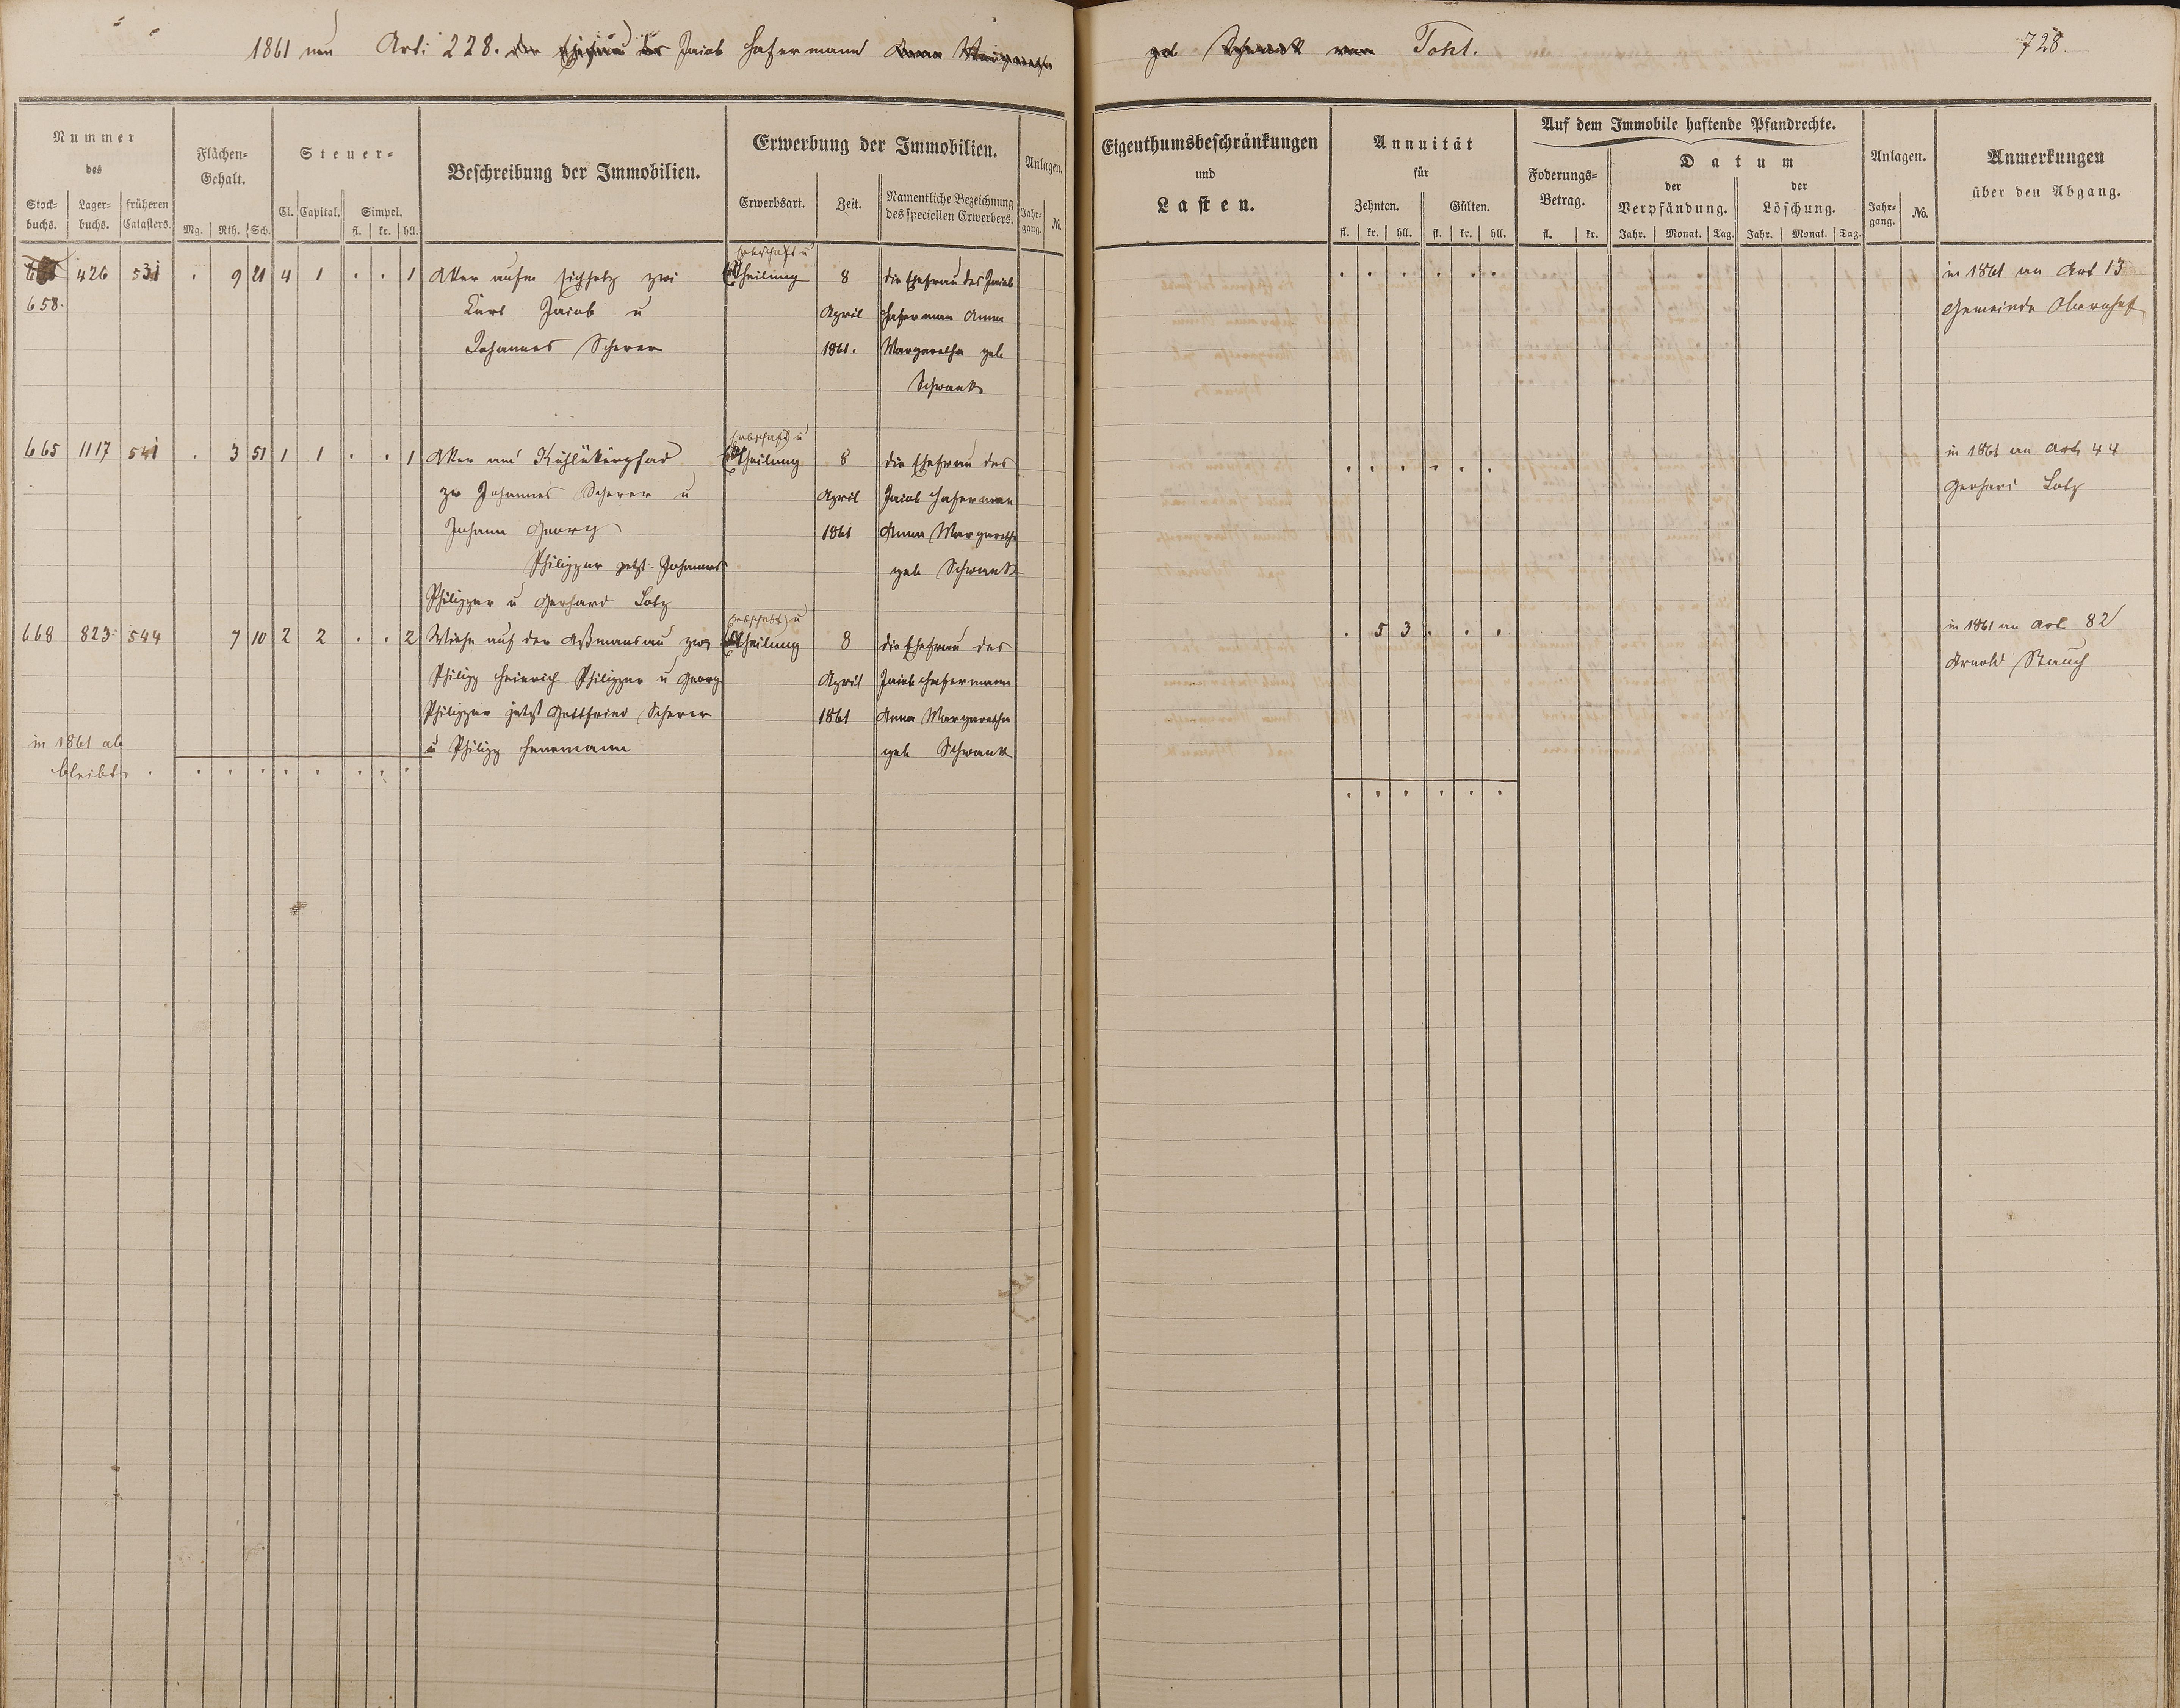 1861 neu Arti 228. der Ehefrau des Jacob Hasermann Anna Margaretha geb Schwank von Dohl. 728.
Nummer des
Stock-buchs. Lager-buchs. früheren Catasters.
Flächen-Gehalt.
Mg. Rth. Sch.
Steuer-
Cl. Capital. Simpel.
fl. kr. hll.
Beschreibung der Immobilien.
Erwerbung der Immobilien.
Erwerbsart. Zeit. Namentliche Bezeichnung des speciellen Erwerbers.
Anlagen.
Jahr-gang. No.
Eigenthumsbeschränkungen
und
Lasten.
Annuität
für
Zehnten. Gülten.
fl. kr. hll. fl. kr. hll.
Auf dem Immobile haftende Pfandrechte.
Foderungs-Betrag.
fl. kr.
Datum
der Verpfändung. der Löschung.
Jahr. Monat. Tag. Jahr. Monat. Tag.
Anlagen.
Jahr-gang. No.
Anmerkungen
über den Abgang.
Erbschaft u
426 531 . 9 21 4 1 . . 1 Aker aufm zwi Theilung 8 die Ehefrau des Jacob . . . . . . in 1861 an Art 13
658. Karl Jacob u April Hasermann Anna Gemeinde Obernhof
Johannes Scherer 1861. Margaretha geb
Schwank
Erbschaft u
665 1117 541 . 3 51 1 1 . . 1 Aker am Theilung 8 die Ehefrau des . . . . . . in 1861 an Art 44
zw Johannes Scherer u April Jacob Hasermann Gerhard Lotz
Johann Georg 1861 Anna Margaretha
Philippar jetzt Johannes geb Schwank
Philippar u Gerhard Lotz
Erbschaft u
668 823 544 7 10 2 2 . . 2 Wiese auf der Aßmansau zwi Theilung 8 die Ehefrau des . 5 3 . . . in 1861 an Art 82
Philipp Heinrich Philippar u Georg April Jacob Hasermann Arnold Stauch
Philippar jetzt Gottfried Scherer 1861 Anna Margaretha
in 1861 ab u Philipp geb Schwank
bleibt . . . . . . . . .
. . . . . .